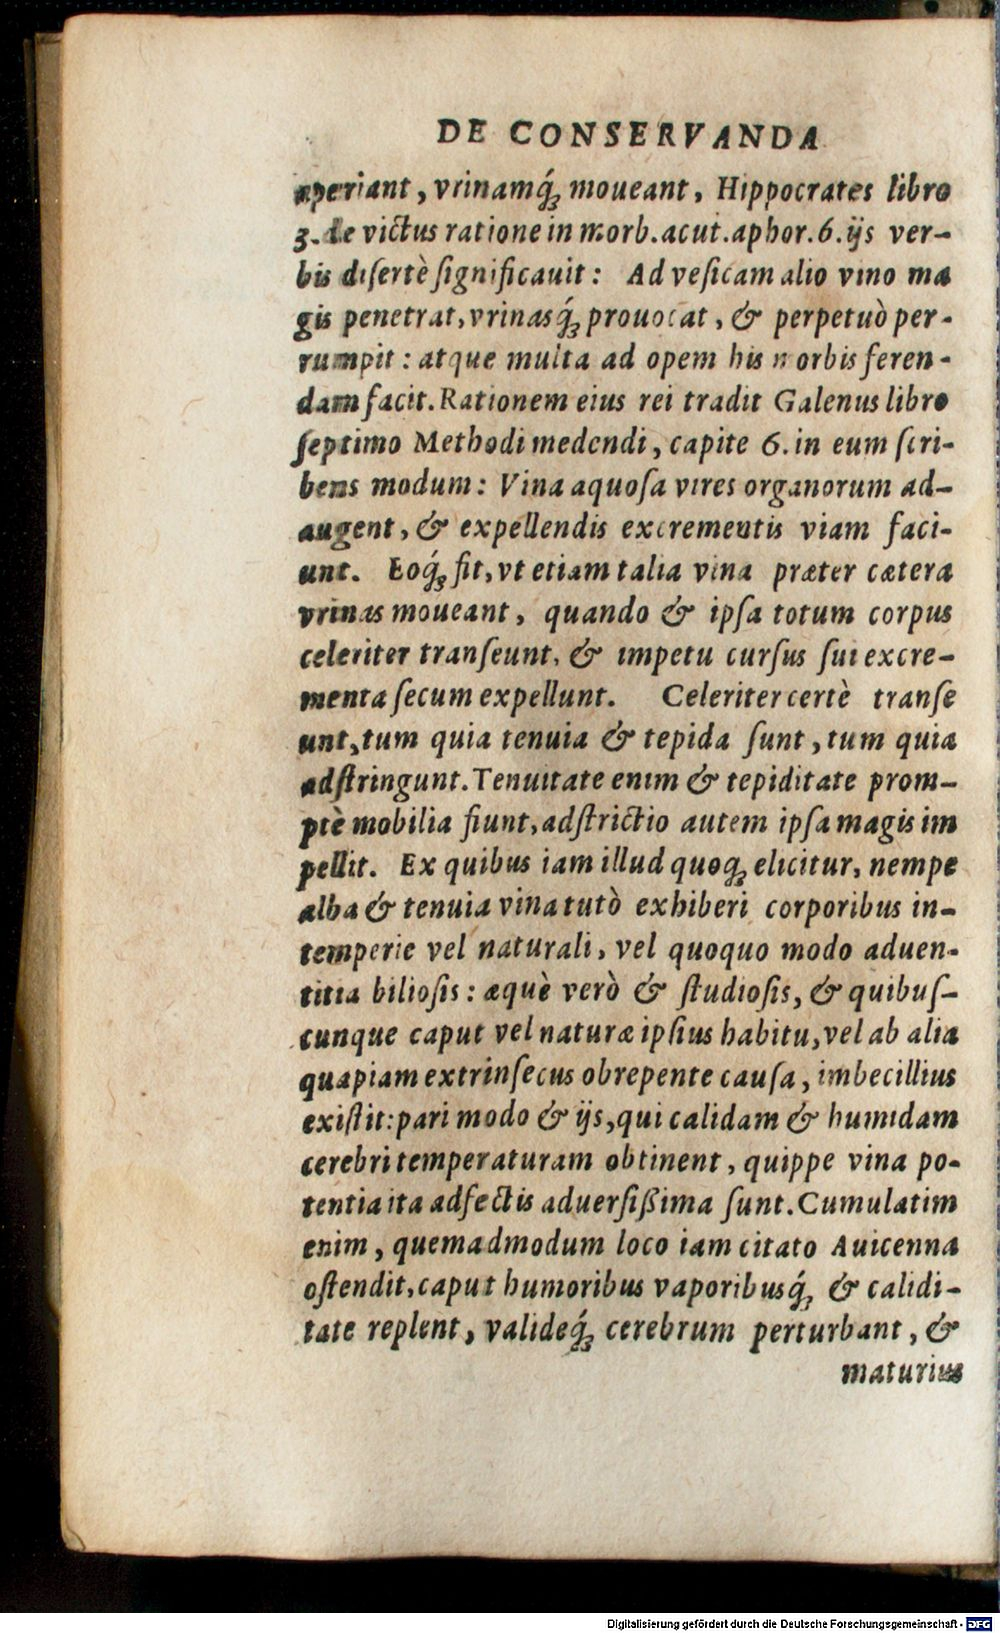 DE CONSERVANDA
aperiant, vrinamq́ꝫ moueant, Hippocrates libro
3. de victus ratione in morb. acut. aphor. 6. ijs ver-
bis disertè ſignificauit: Ad veſicam alio vino ma
gis penetrat, vrinasq́ꝫ prouocat, & perpetuò per-
rumpit: atque multa ad opem his morbis feren-
dam facit. Rationem eius rei tradit Galenus libro
ſeptimo Methodi medendi, capite 6. in eum ſcri-
bens modum: Vina aquoſa vires organorum ad-
augent, & expellendis excrementis viam faci-
unt. Eoq́ꝫ fit, vt etiam talia vina præter cætera
vrinas moueant, quando & ipſa totum corpus
celeriter tranſeunt, & impetu curſus ſui excre-
menta ſecum expellunt. Celeriter certè tranſe
unt, tum quia tenuia & tepida ſunt, tum quia
adſtringunt. Tenuitate enim & tepiditate prom-
ptè mobilia fiunt, adſtrictio autem ipſa magis im
pellit. Ex quibus iam illud quoqꝫ elicitur, nempe
alba & tenuia vina tutò exhiberi corporibus in-
temperie vel naturali, vel quoquo modo aduen-
titia bilioſis: æquè verò & ſtudioſis, & quibuſ-
cunque caput vel naturæ ipſius habitu, vel ab alia
quapiam extrinſecus obrepente cauſa, imbecillius
exiſtit: pari modo & ijs, qui calidam & humidam
cerebri temperaturam obtinent, quippe vina po-
tentia ita adfectis aduerſißima ſunt. Cumulatim
enim, quemadmodum loco iam citato Auicenna
oſtendit, caput humoribus vaporibusq́ꝫ & calidi-
tate replent, valideq́ꝫ cerebrum perturbant, &
maturius
Digitalisierung gefördert durch die Deutsche Forschungsgemeinschaft - DFG